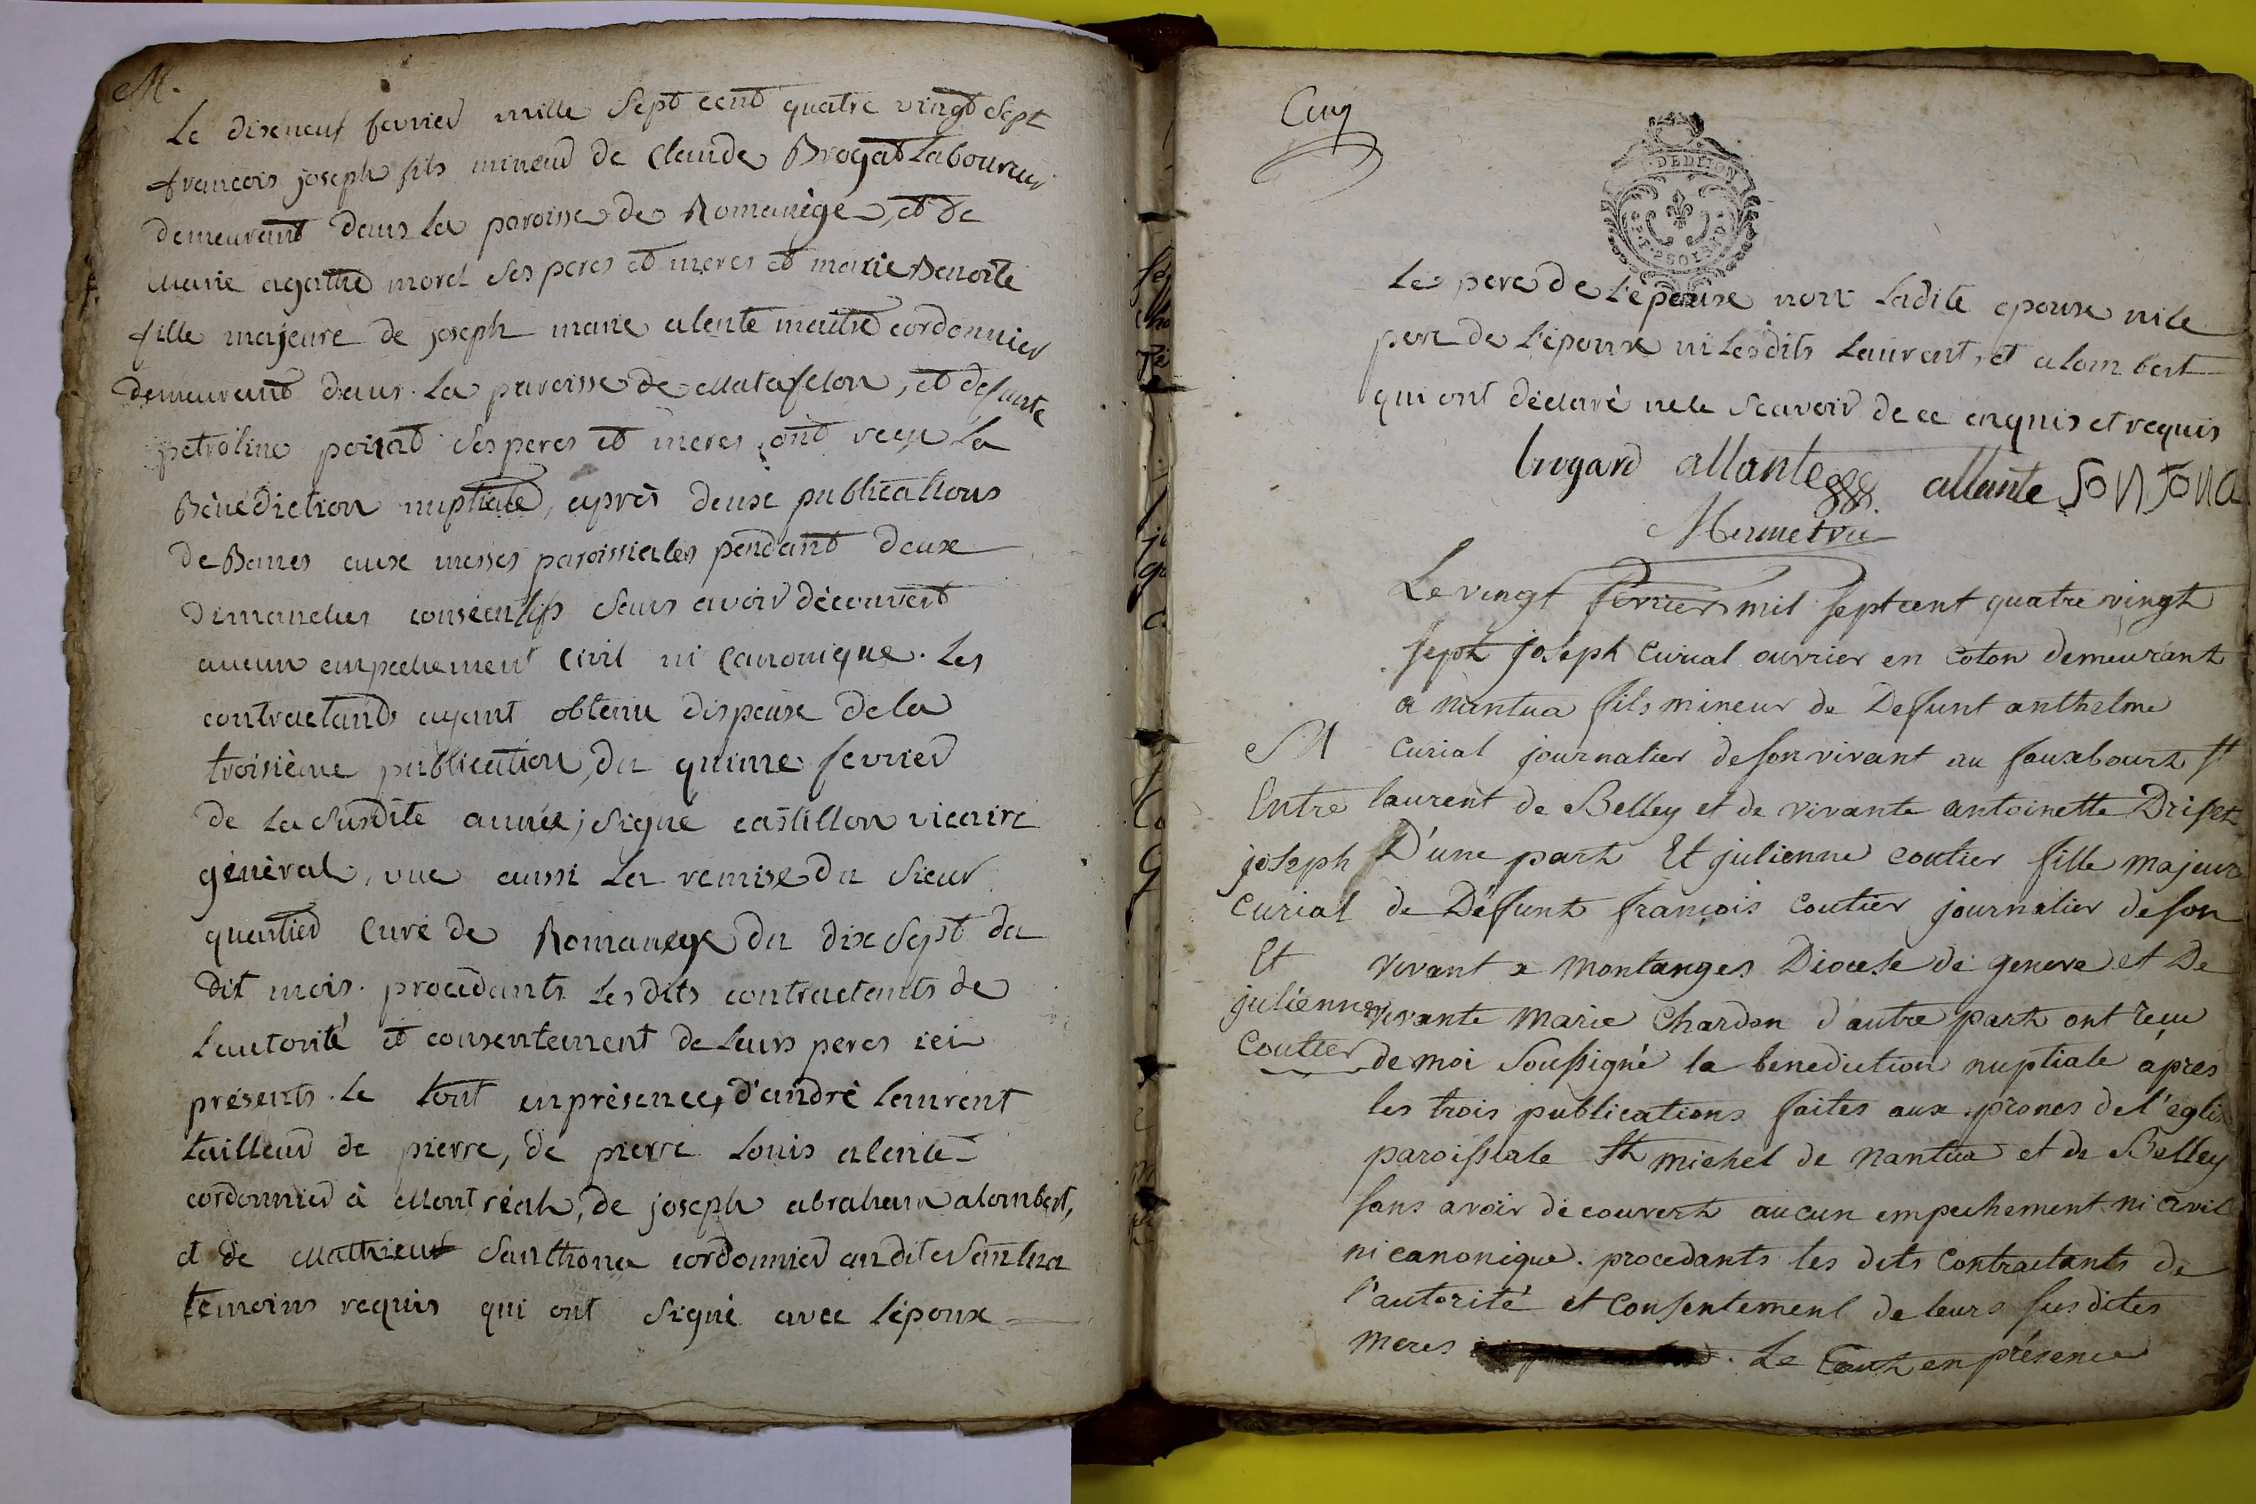 M.
Le dixneuf fevrier mille Sept cent quatre vingt Sept
françois joseph fils mineur de Claude Brogat Laboureur
demeurant dans la paroisse de Romanège, et de
Marie agathe morel Ses peres et meres et marie Benoite
fille majeure de joseph marie alente maitre cordonnier
demeurant dans la paroisse de Matafelon, et defunte
petroline poirat Ses peres et meres, ont reçu La
Bénédiction nuptiale, après deux publications
de Banes aux messes paroissiales pendant deux
dimanches consécutifs sans avoir découvert
aucun empechement civil ni Canonique. Les
contractants ayant obtenu dispense de la
troisième publication, du quinze fevrier
de la Susdite année; Signé castillon vicaire
général, vue aussi La remise du Sieur
quartier Curé de Romanege du dix Sept du
dit mois. procédants Les dits contractants de
l'autorité et consentement de Leurs peres ici
présents. Le tout en présence, d'andré Laurent
tailleur de pierre, de pierre Louis alente
cordonnier à Montréal, de joseph abraham alombert,
et de Mathieu Santhona cordonnier audit Nantua
témoins requis qui ont Signé avec l'époux
Le pere de l'épouse non Ladite epouse ni le
pere de l'époux ni Lesdits Laurent, et alombert
qui ont déclaré ne le Scavoir de ce enquis et requis
brogard allante allante SONTONA
Le vingt fevrier mil sept cent quatre vingt
sept joseph Curial ouvrier en Coton demeurant
a nantua fils mineur de Defunt anthelme
M Curial journalier de son vivant au fauxbourt st
Entre laurent de Belley et de vivante antoinette
joseph D'une part Et julienne coutier fille majeure
Curial de Défunt françois Coutier journalier de son
Et vivant a montanges Diocese de geneve et De
julienne vivante Marie Chardon d'autre part ont recu
Coutier de moi Soussigné la benediction nuptiale après
les trois publications faites aux prones de l'eglise
paroissiale st michel de nantua et de Belley
sans avoir découvert aucun empechement ni civil
ni canonique. procedants les dits Contractants de
l'autorité et Consentement de leurs susdites
meres . Le tout en présence